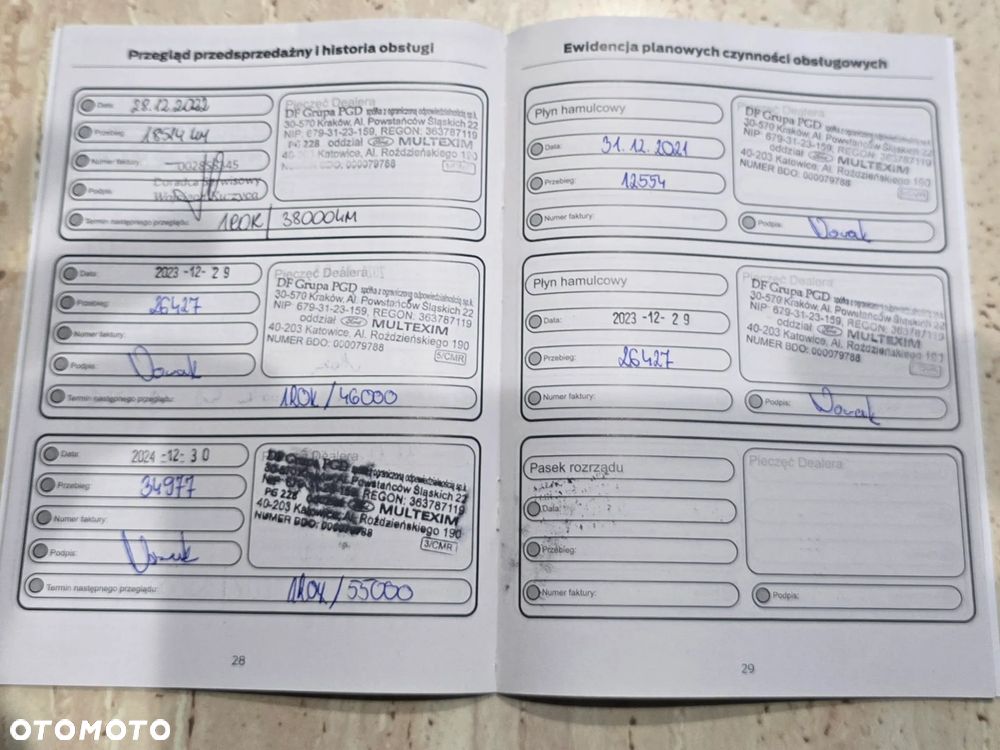 Przegląd przedsprzedażny i historia obsługi
Data: 28.12.2022
Przebieg: 18514 km
Numer faktury:
Podpis:
Doradca Serwisowy
Termin następnego przeglądu: 1ROK / 38000KM
Pieczęć Dealera
DF Grupa PGD spółka z ograniczoną odpowiedzialnością sp.k.
30-570 Kraków, Al. Powstańców Śląskich 22
NIP: 679-31-23-159, REGON: 363787119
PG 228 oddział Ford MULTEXIM
40-203 Katowice, Al. Roździeńskiego 190
NUMER BDO: 000079788
Data: 2023-12-29
Przebieg: 26427
Numer faktury:
Podpis: Nowak
Termin następnego przeglądu: 1ROK / 46000
Pieczęć Dealera
DF Grupa PGD spółka z ograniczoną odpowiedzialnością sp.k.
30-570 Kraków, Al. Powstańców Śląskich 22
NIP: 679-31-23-159, REGON: 363787119
oddział Ford MULTEXIM
40-203 Katowice, Al. Roździeńskiego 190
NUMER BDO: 000079788
5/CMR
Data: 2024-12-30
Przebieg: 34977
Numer faktury:
Podpis: Nowak
Termin następnego przeglądu: 1ROK / 55000
Pieczęć Dealera
DF Grupa PGD spółka z ograniczoną odpowiedzialnością sp.k.
30-570 Kraków, Al. Powstańców Śląskich 22
NIP: 679-31-23-159, REGON: 363787119
PG 228 oddział MULTEXIM
40-203 Katowice, Al. Roździeńskiego 190
NUMER BDO: 000079788
3/CMR
28
Ewidencja planowych czynności obsługowych
Płyn hamulcowy
Data: 31.12.2021
Przebieg: 12554
Numer faktury:
Pieczęć Dealera
DF Grupa PGD spółka z ograniczoną odpowiedzialnością sp.k.
30-570 Kraków, Al. Powstańców Śląskich 22
NIP: 679-31-23-159, REGON: 363787119
oddział Ford MULTEXIM
40-203 Katowice, Al. Roździeńskiego 190
NUMER BDO: 000079788
Podpis: Nowak
Płyn hamulcowy
Data: 2023-12-29
Przebieg: 26427
Numer faktury:
DF Grupa PGD spółka z ograniczoną odpowiedzialnością sp.k.
30-570 Kraków, Al. Powstańców Śląskich 22
NIP: 679-31-23-159, REGON: 363787119
oddział Ford MULTEXIM
40-203 Katowice, Al. Roździeńskiego 190
NUMER BDO: 000079788
Podpis: Nowak
Pasek rozrządu
Data:
Przebieg:
Numer faktury:
Pieczęć Dealera
Podpis:
29
OTOMOTO